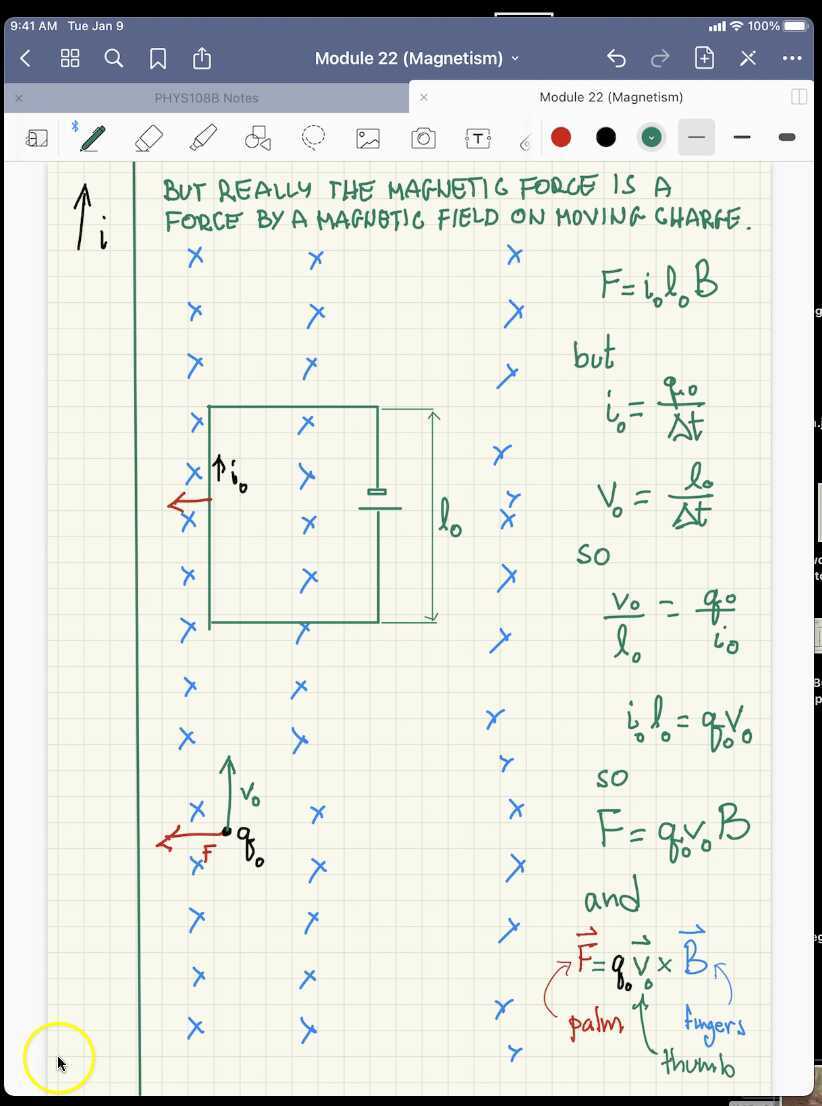 9:41 AM Tue Jan 9
100%
Module 22 (Magnetism)
PHYS108B Notes
Module 22 (Magnetism)
T
i
BUT REALLY THE MAGNETIC FORCE IS A
FORCE BY A MAGNETIC FIELD ON MOVING CHARGE.
F = i₀l₀B
but
i₀ = q₀/Δt
i₀
l₀
v₀ = l₀/Δt
so
v₀/l₀ = q₀/i₀
i₀l₀ = q₀v₀
so
v₀
F
q₀
F = q₀v₀B
and
F⃗ = q₀v⃗₀ × B⃗
palm
fingers
thumb